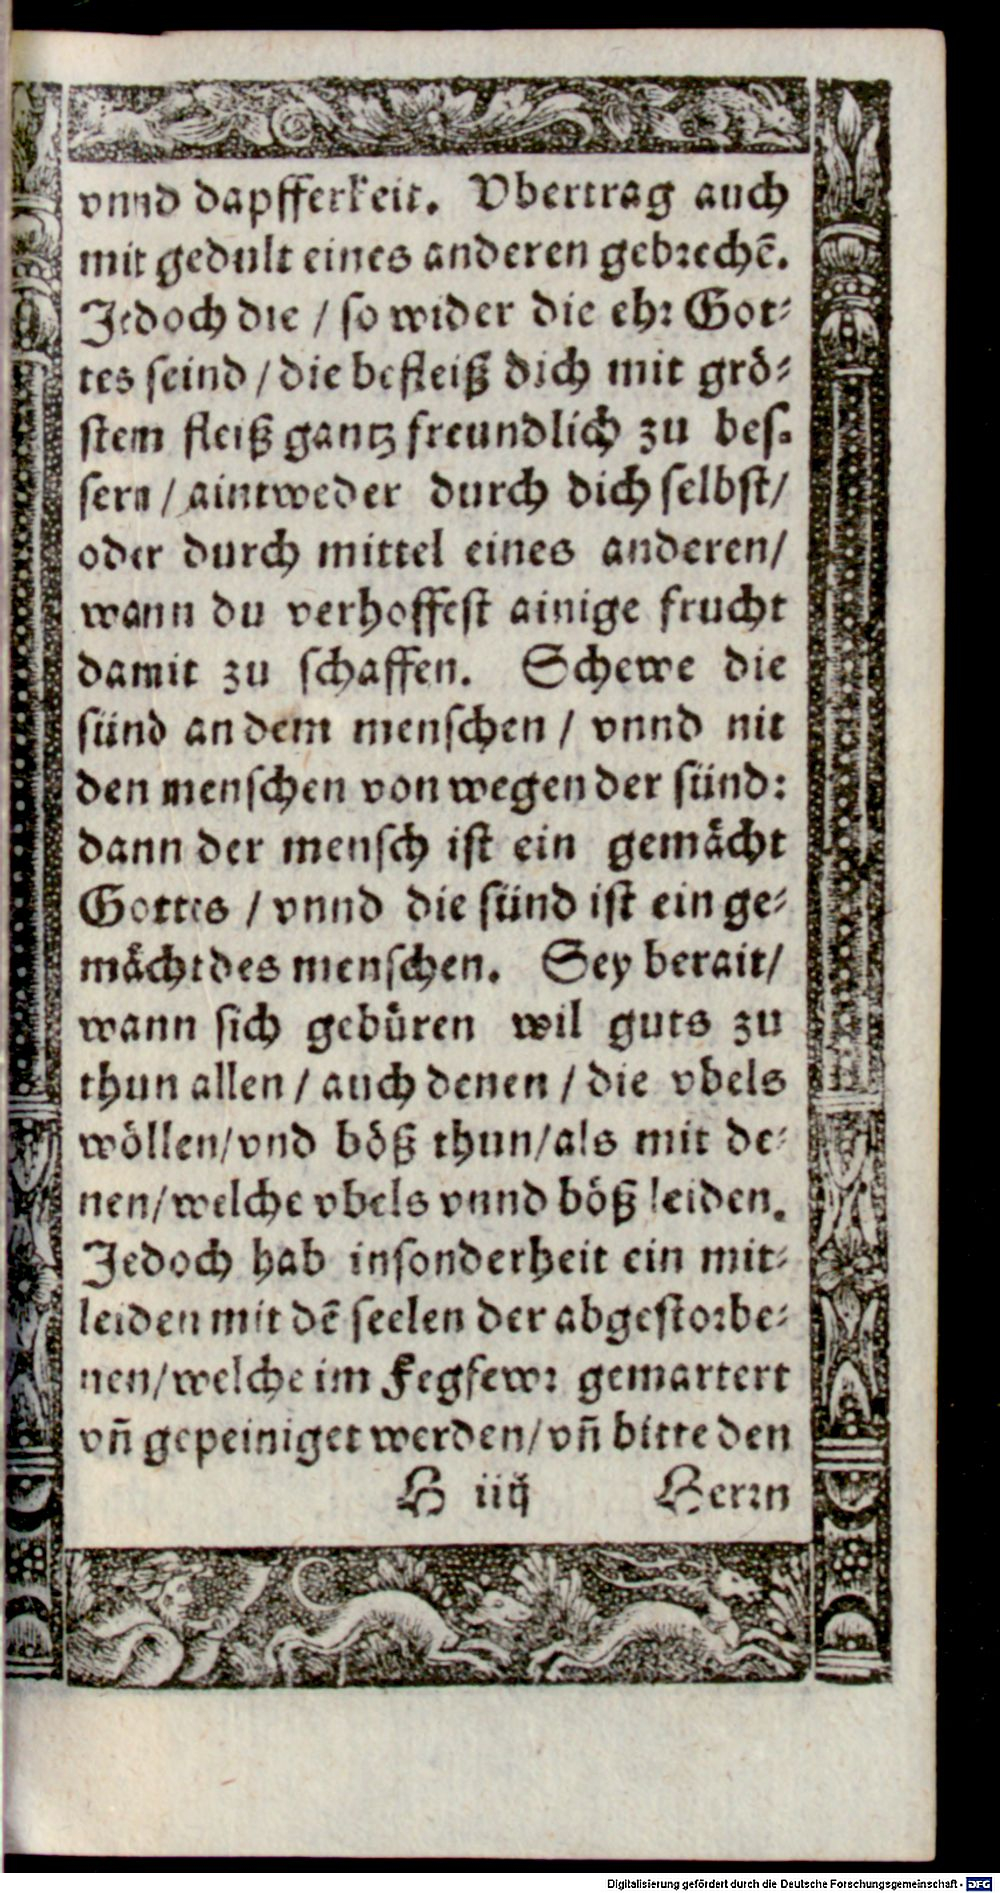 vnnd dapfferkeit. Vbertrag auch
mit gedult eines anderen gebrechẽ.
Jedoch die / so wider die ehr Got-
tes seind / die befleiß dich mit grö-
stem fleiß gantz freundlich zu bes-
sern / aintweder durch dich selbst/
oder durch mittel eines anderen/
wann du verhoffest ainige frucht
damit zu schaffen. Schewe die
sünd an dem menschen / vnnd nit
den menschen von wegen der sünd:
dann der mensch ist ein gemächt
Gottes / vnnd die sünd ist ein ge-
mächt des menschen. Sey berait/
wann sich gebüren wil guts zu
thun allen / auch denen / die vbels
wöllen/vnd böß thun/als mit de-
nen/welche vbels vnnd böß leiden.
Jedoch hab insonderheit ein mit-
leiden mit dẽ seelen der abgestorbe-
nen/welche im Fegfewr gemartert
vñ gepeiniget werden/vñ bitte den
H iiij Herrn
Digitalisierung gefördert durch die Deutsche Forschungsgemeinschaft - DFG